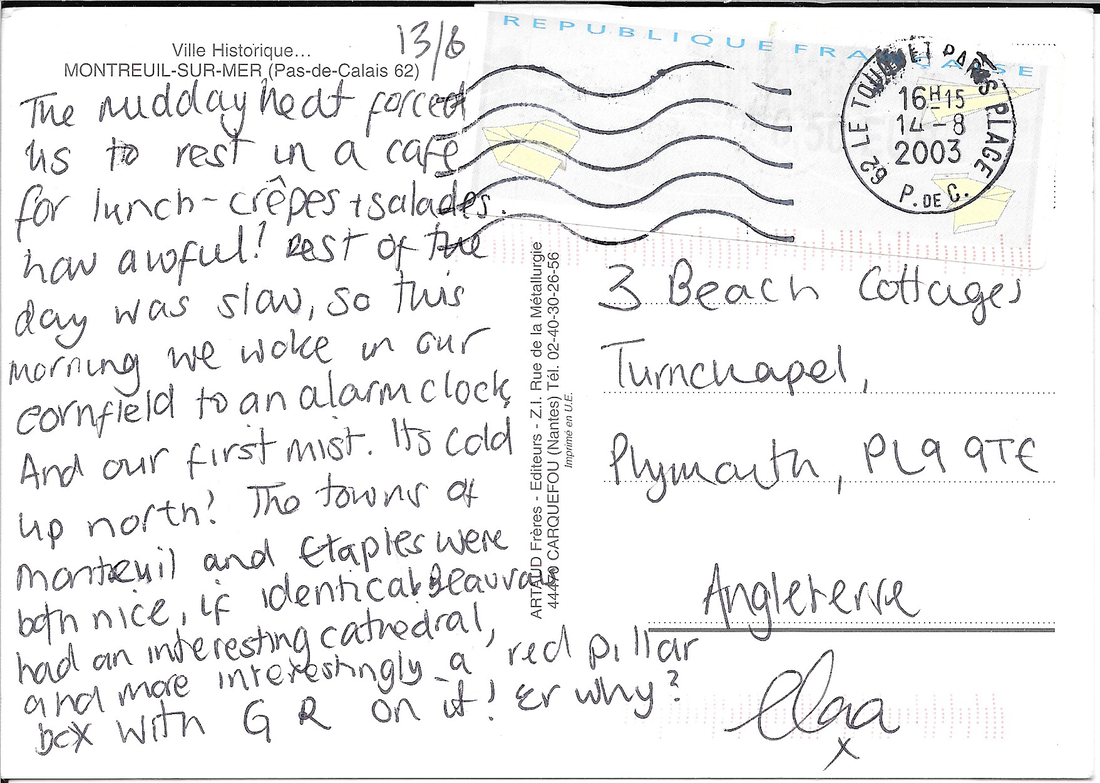 Ville Historique...
MONTREUIL-SUR-MER (Pas-de-Calais 62)
13/8
The midday heat forced
us to rest in a café
for lunch-crêpes + salades.
how awful! Rest of the
day was slow, so this
morning we woke in our
cornfield to an alarm clock,
And our first mist. Its cold
up north! The towns of
Montreuil and Etaples were
both nice, if identical. Beauvais
had an interesting cathedral,
and more interestingly a red pillar
box with G R on it! Er why?
REPUBLIQUE FRANÇAISE
62 LE TOUQUET PARIS PLAGE
16H15
14-8
2003
P. DE C.
ARTAUD Frères - Editeurs - Z.I. Rue de la Métallurgie
44470 CARQUEFOU (Nantes) Tél. 02-40-30-26-56
Imprimé en U.E.
3 Beach Cottages
Turnchapel,
Plymouth, PL9 9TE
Angleterre
x